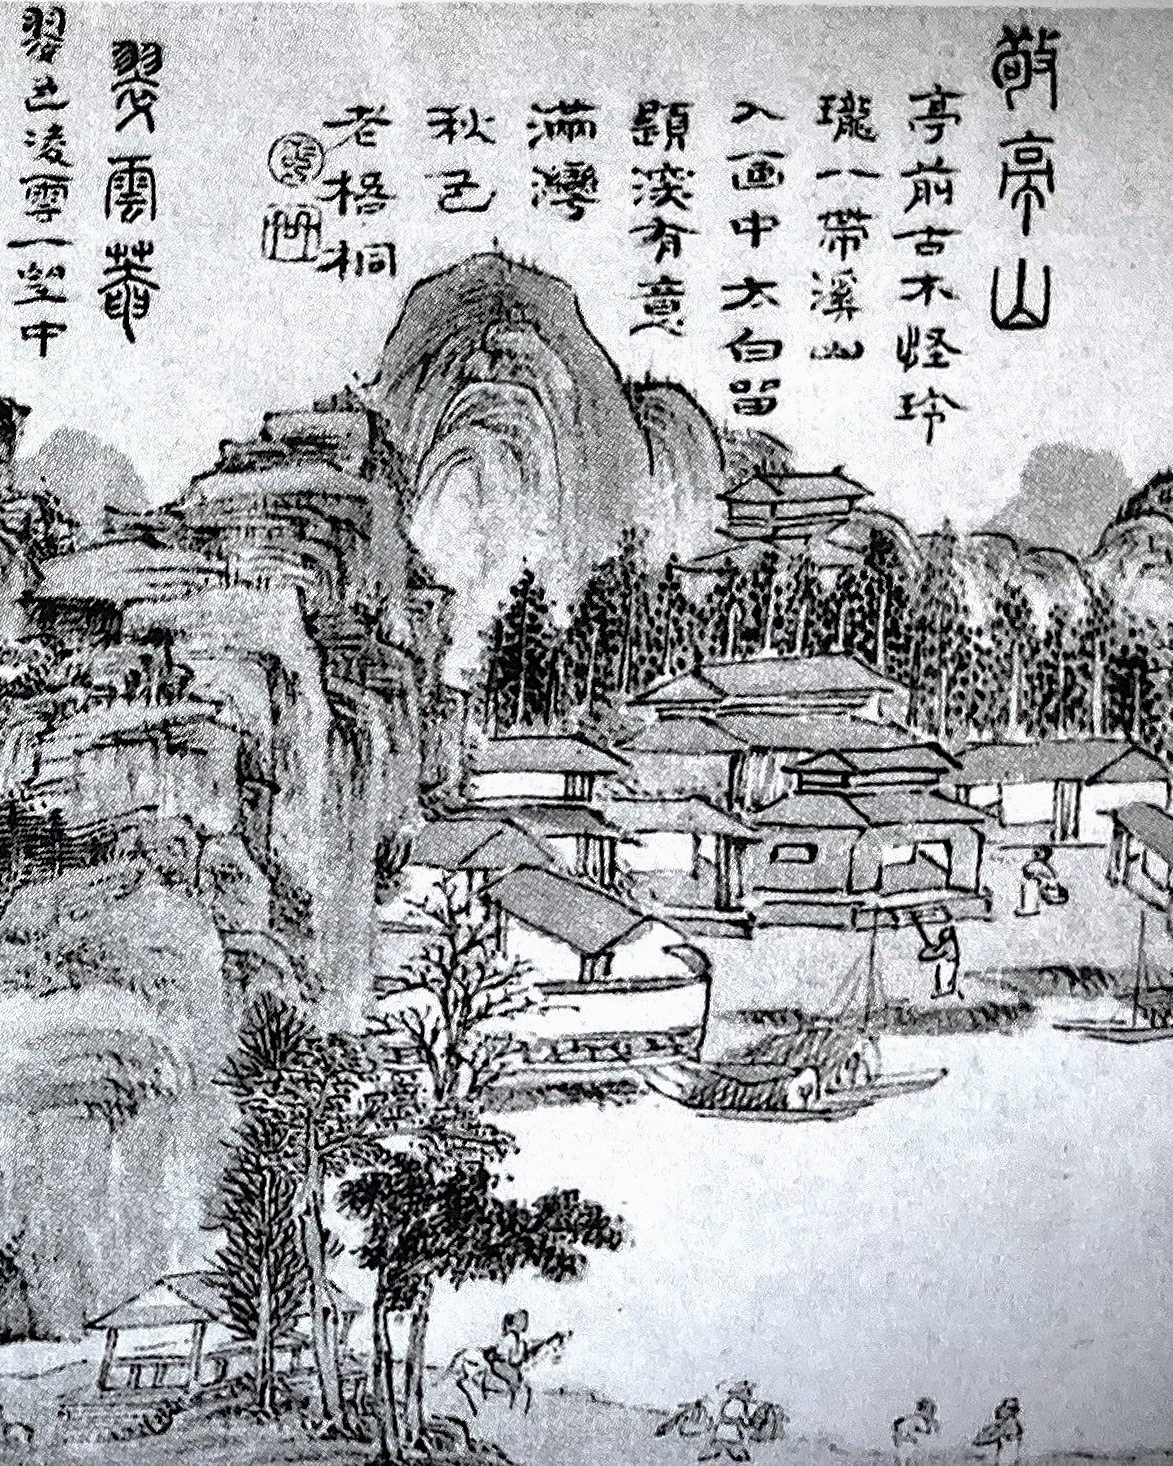 敬亭山
亭前古木怪玲
瓏一帶溪山
入画中太白留
題深有意
滿灣
秋色
老梧桐
翠雲菴
翠色凌雲一望中